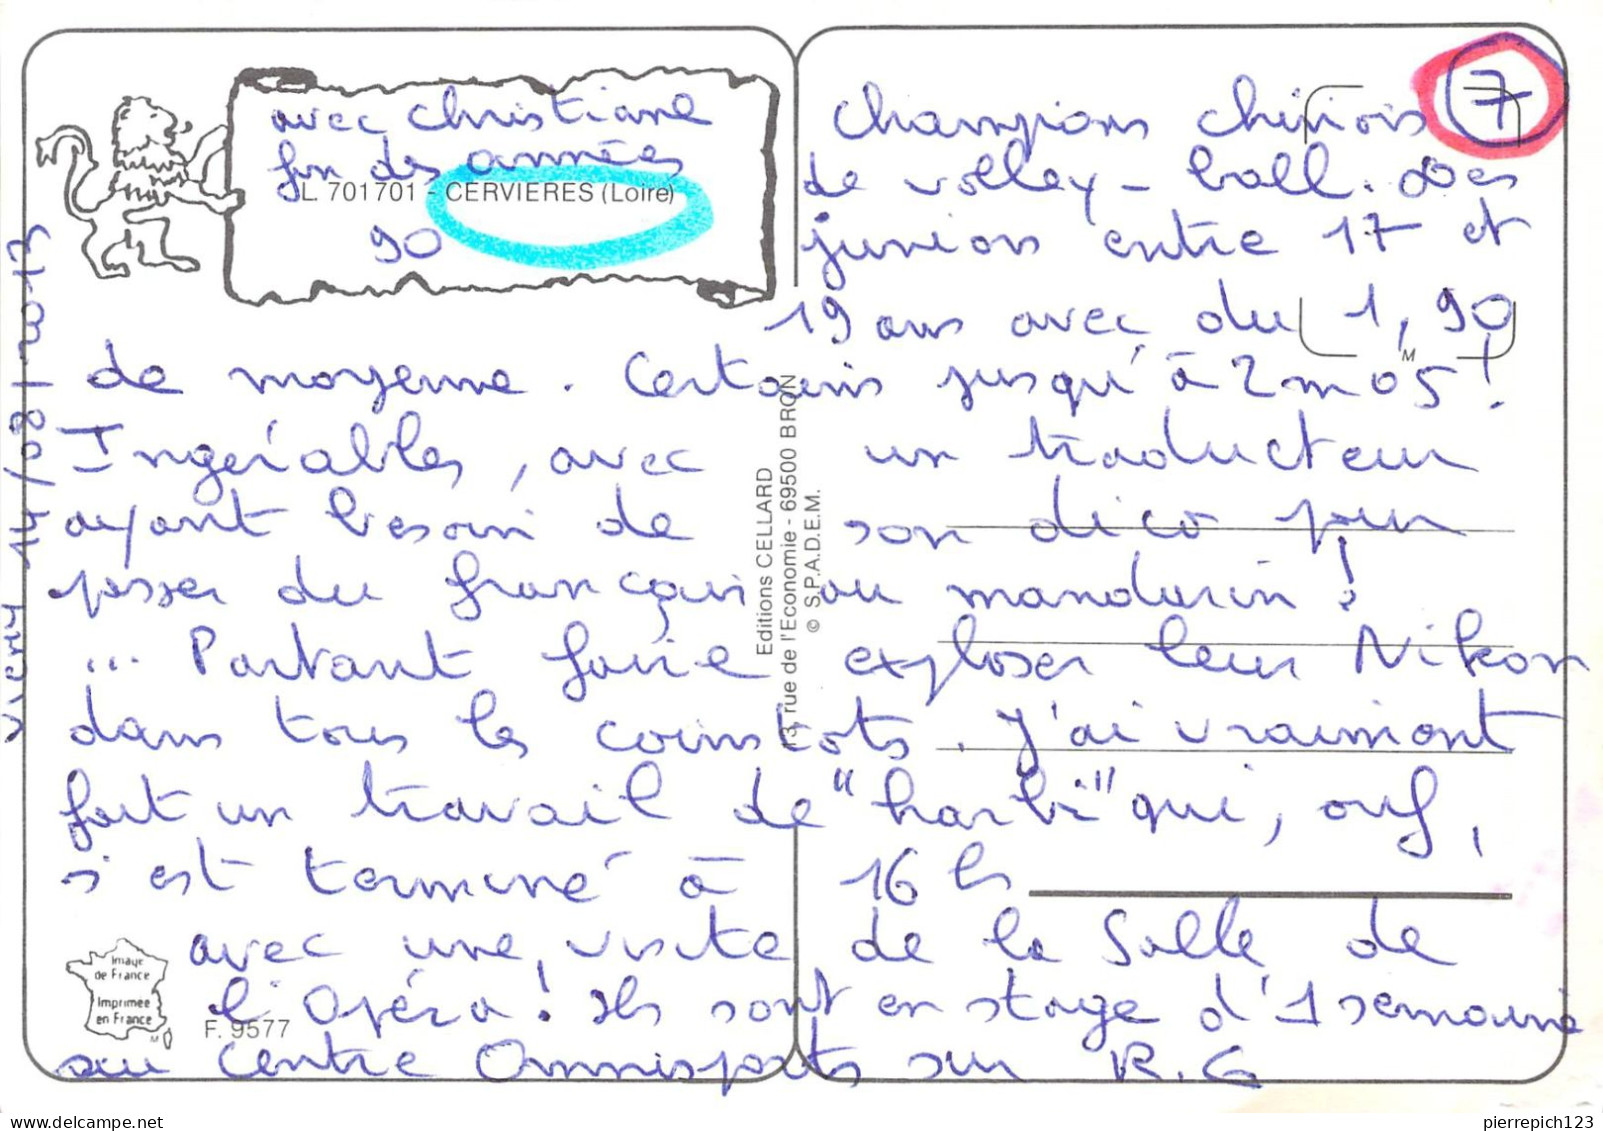 avec Christiane
fin des années
L. 701701 - CERVIERES (Loire)
90
7
Champions chinois
de volley-ball. Des
juniors entre 17 et
19 ans avec du 1,90
de moyenne. Certains jusqu'à 2m05!
Ingérables, avec un traducteur
ayant besoin de son dico pour
passer du français au mandarin!
... Partant faire exploser leur Nikon
dans tous les coins tots. J'ai vraiment
fait un travail de "harki" qui, ouf,
s'est terminé à 16 hs
avec une visite de la Salle de
l'Opéra! Ils sont en stage d'1 semaine
au Centre Omnisports sur R.G
Vichy 14/08/2013
Editions CELLARD
13, rue de l'Economie - 69500 BRON
© S.P.A.D.E.M.
M
Image
de France
Imprimée
en France
M
F. 9577
pierrepich123